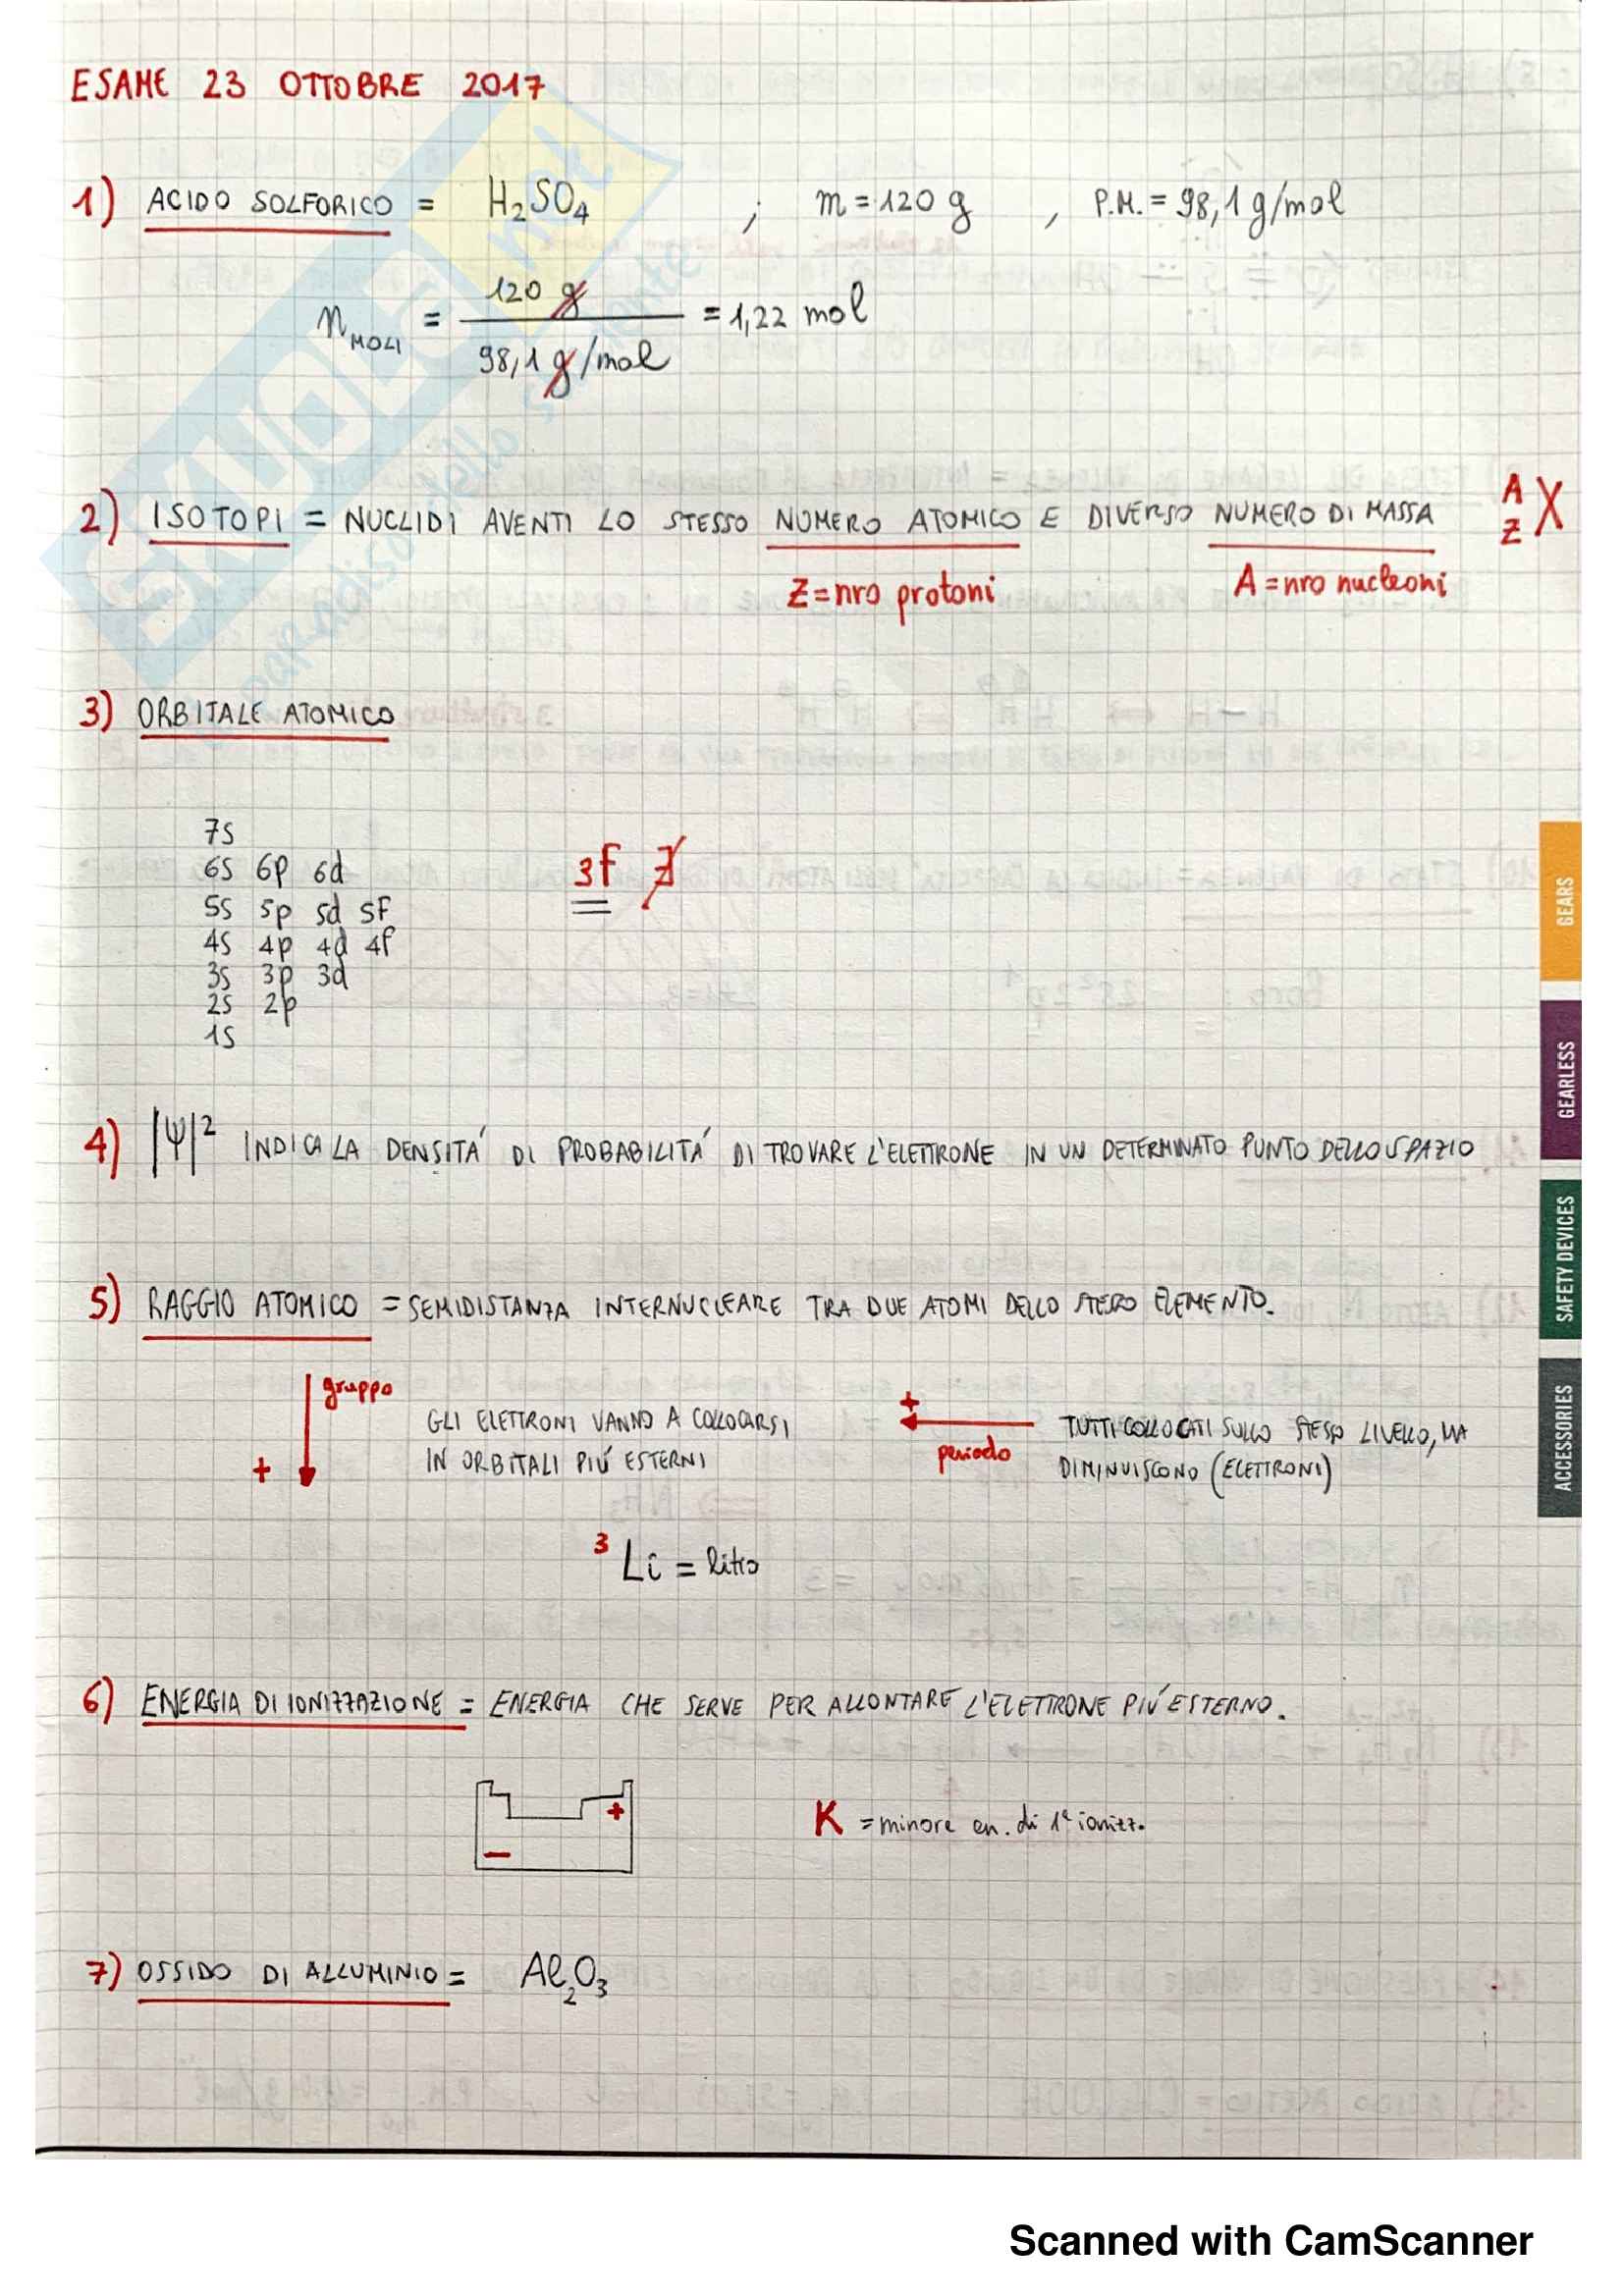 ESAME 23 OTTOBRE 2017
1) ACIDO SOLFORICO = H₂SO₄ ; m = 120 g , P.M. = 98,1 g/mol
n MOLI = 120 g / 98,1 g/mol = 1,22 mol
2) ISOTOPI = NUCLIDI AVENTI LO STESSO NUMERO ATOMICO E DIVERSO NUMERO DI MASSA A Z X
Z = nro protoni A = nro nucleoni
3) ORBITALE ATOMICO
7s
6s 6p 6d
5s 5p 5d 5f
4s 4p 4d 4f
3s 3p 3d
2s 2p
1s
3f ∄
4) |Ψ|² INDICA LA DENSITÁ DI PROBABILITÁ DI TROVARE L'ELETTRONE IN UN DETERMINATO PUNTO DELLO SPAZIO
5) RAGGIO ATOMICO = SEMIDISTANZA INTERNUCLEARE TRA DUE ATOMI DELLO STESSO ELEMENTO.
gruppo
+
GLI ELETTRONI VANNO A COLLOCARSI
IN ORBITALI PIÚ ESTERNI
+
periodo
TUTTI COLLOCATI SULLO STESSO LIVELLO, MA
DIMINUISCONO (ELETTRONI)
³Li = litio
6) ENERGIA DI IONIZZAZIONE = ENERGIA CHE SERVE PER ALLONTARE L'ELETTRONE PIÚ ESTERNO.
+
−
K = minore en. di 1ª ionizz.
7) OSSIDO DI ALLUMINIO = Al₂O₃
GEARS
GEARLESS
SAFETY DEVICES
ACCESSORIES
SKUOLA.net
paradiso dello studente
Scanned with CamScanner